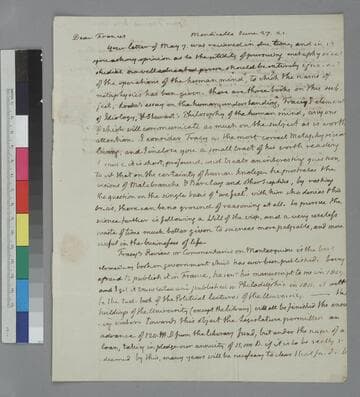 Dear Francis Monticello June 27. 21.
Your letter of May 7. was recieved in due time, and in it
you ask my opinion as to the utility of pursuing metaphysical
studies. no well educated person should be entirely ignorant
of the operations of the human mind, to which the name of
metaphysics has been given. there are three books on this sub-
ject, Locke's essay on the human understanding, Tracy's elements
of Ideology, & Stewart's Philosophy of the human mind, any one
of which will communicate as much on the subject as is worth
attention. I consider Tracy as the most correct Metaphysician
living; and I inclose you a small tract of his worth reading
because it is short, profound, and treats an interesting question
to wit that on the certainty of human knolege. he prostrates the
visions of Malebranche & Barclay and other sceptics, by resting
the question on the single basis of 'we feel.' with him who denies this
basis, there can be no ground of reasoning at all. to pursue the
science further is following a Will of the wisp, and a very useless
waste of time much better given to sciences more palpable, and more
useful in the business of life.
Tracy's Review or Commentaries on Montesquieu is the best
elementary book on government which has ever been published. being
afraid to publish it in France, he sent his manuscript to me in 1809.
and I got it translated and published in Philadelphia in 1811. it will
be the text book of the Political lectures of the University. the
buildings of the University (except the Library) will all be finished the ensu-
ing season. towards this object the legislature permitted an
advance of 120. M D. from the literary fund, but under the name of a
loan, taking in pledge our annuity of 15,000 D. if it is to be really re-
deemed by this, many years will be necessary to clear